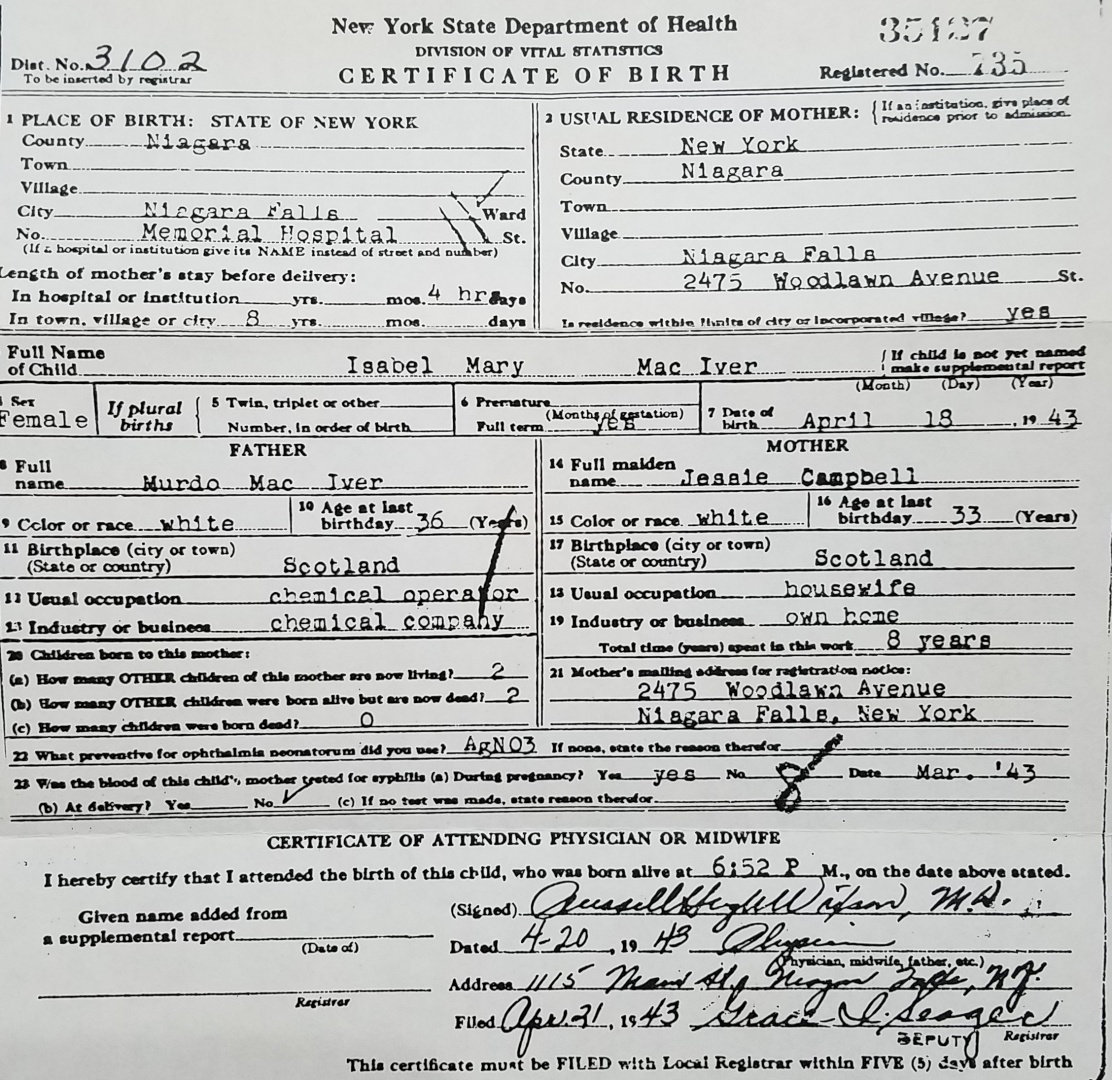 New York State Department of Health
DIVISION OF VITAL STATISTICS
CERTIFICATE OF BIRTH
Dist. No. 3102
To be inserted by registrar
Registered No. 735
1 PLACE OF BIRTH: STATE OF NEW YORK
County Niagara
Town
Village
City Niagara Falls Ward
No. Memorial Hospital St.
(If a hospital or institution give its NAME instead of street and number)
Length of mother's stay before delivery:
In hospital or institution yrs. mos. 4 hrs days
In town, village or city 8 yrs. mos. days
2 USUAL RESIDENCE OF MOTHER: {If an institution, give place of residence prior to admission.
State New York
County Niagara
Town
Village
City Niagara Falls
No. 2475 Woodlawn Avenue St.
Is residence within limits of city or incorporated village? yes
Full Name of Child Isabel Mary Mac Iver {If child is not yet named make supplemental report
Sex Female
If plural births
5 Twin, triplet or other
Number, in order of birth
6 Premature
(Months of gestation)
Full term yes
(Month) (Day) (Year)
7 Date of birth April 18, 1943
FATHER
8 Full name Murdo Mac Iver
9 Color or race white
10 Age at last birthday 36 (Years)
11 Birthplace (city or town)
(State or country) Scotland
12 Usual occupation chemical operator
13 Industry or business chemical company
MOTHER
14 Full maiden name Jessie Campbell
15 Color or race white
16 Age at last birthday 33 (Years)
17 Birthplace (city or town)
(State or country) Scotland
18 Usual occupation housewife
19 Industry or business own home
Total time (years) spent in this work 8 years
20 Children born to this mother:
(a) How many OTHER children of this mother are now living? 2
(b) How many OTHER children were born alive but are now dead? 2
(c) How many children were born dead? 0
21 Mother's mailing address for registration notice:
2475 Woodlawn Avenue
Niagara Falls, New York
22 What preventive for ophthalmia neonatorum did you use? AgNO3 If none, state the reason therefor
23 Was the blood of this child's mother tested for syphilis (a) During pregnancy? Yes yes No Date Mar. '43
(b) At delivery? Yes No ✓ (c) If no test was made, state reason therefor
8
CERTIFICATE OF ATTENDING PHYSICIAN OR MIDWIFE
I hereby certify that I attended the birth of this child, who was born alive at 6:52 P M., on the date above stated.
Given name added from
a supplemental report
(Date of)
Registrar
(Signed) Russell M.D.
Dated 4-20, 1943
(Physician, midwife, father, etc.)
Address 1115 Main St., Niagara Falls, N.Y.
Filed Apr. 21, 1943 Grace I. Seager
DEPUTY Registrar
This certificate must be FILED with Local Registrar within FIVE (5) days after birth